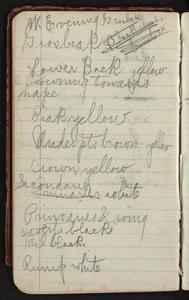 W. Evening Grosbeak
Grosbeak
Lower Back yellow
browning towards
nape
Beak yellow
Under pts brown yellow
Crown yellow
Secondaries
Primaries white
Primaries & wing
coverts black
Tail black.
Rump white